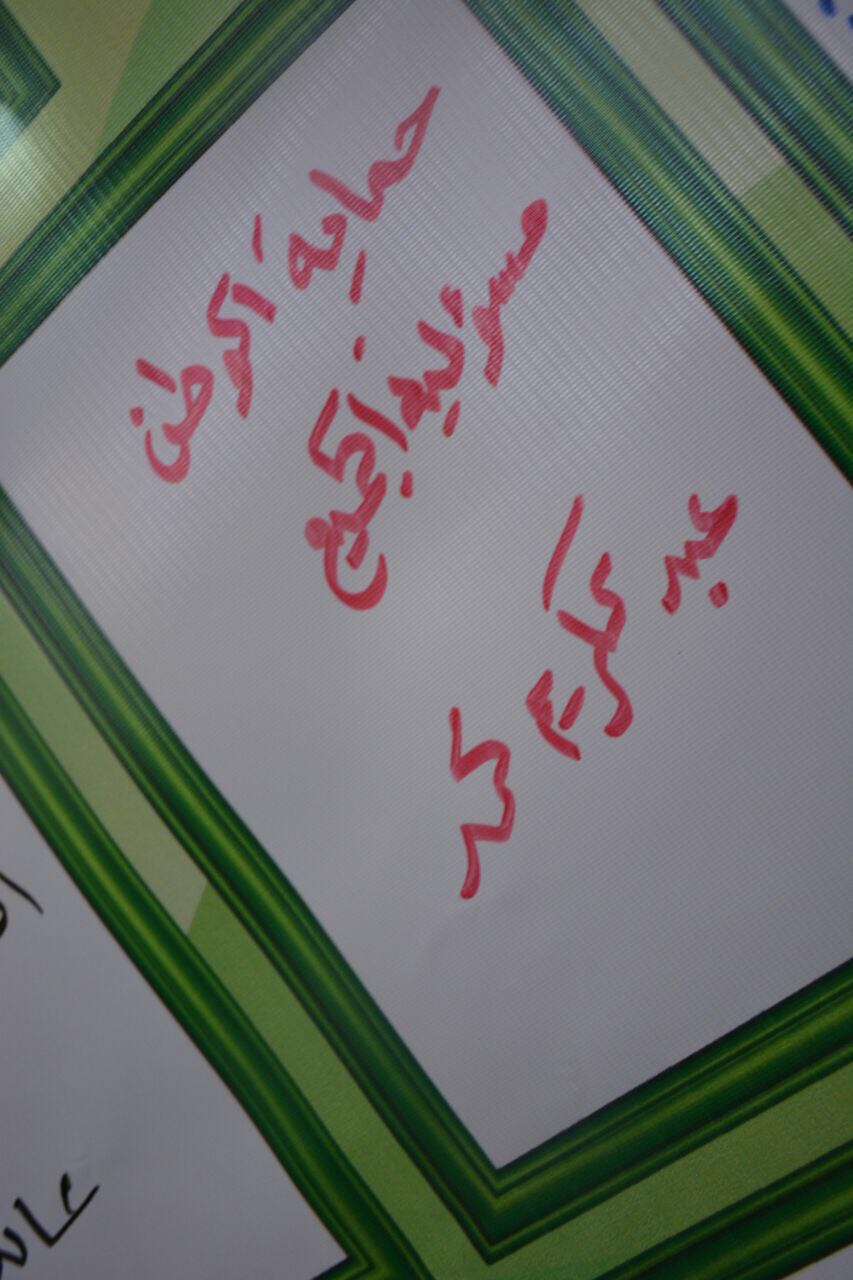 حماية الوطن
مسؤلية الجميع
عبد الكريم محمد